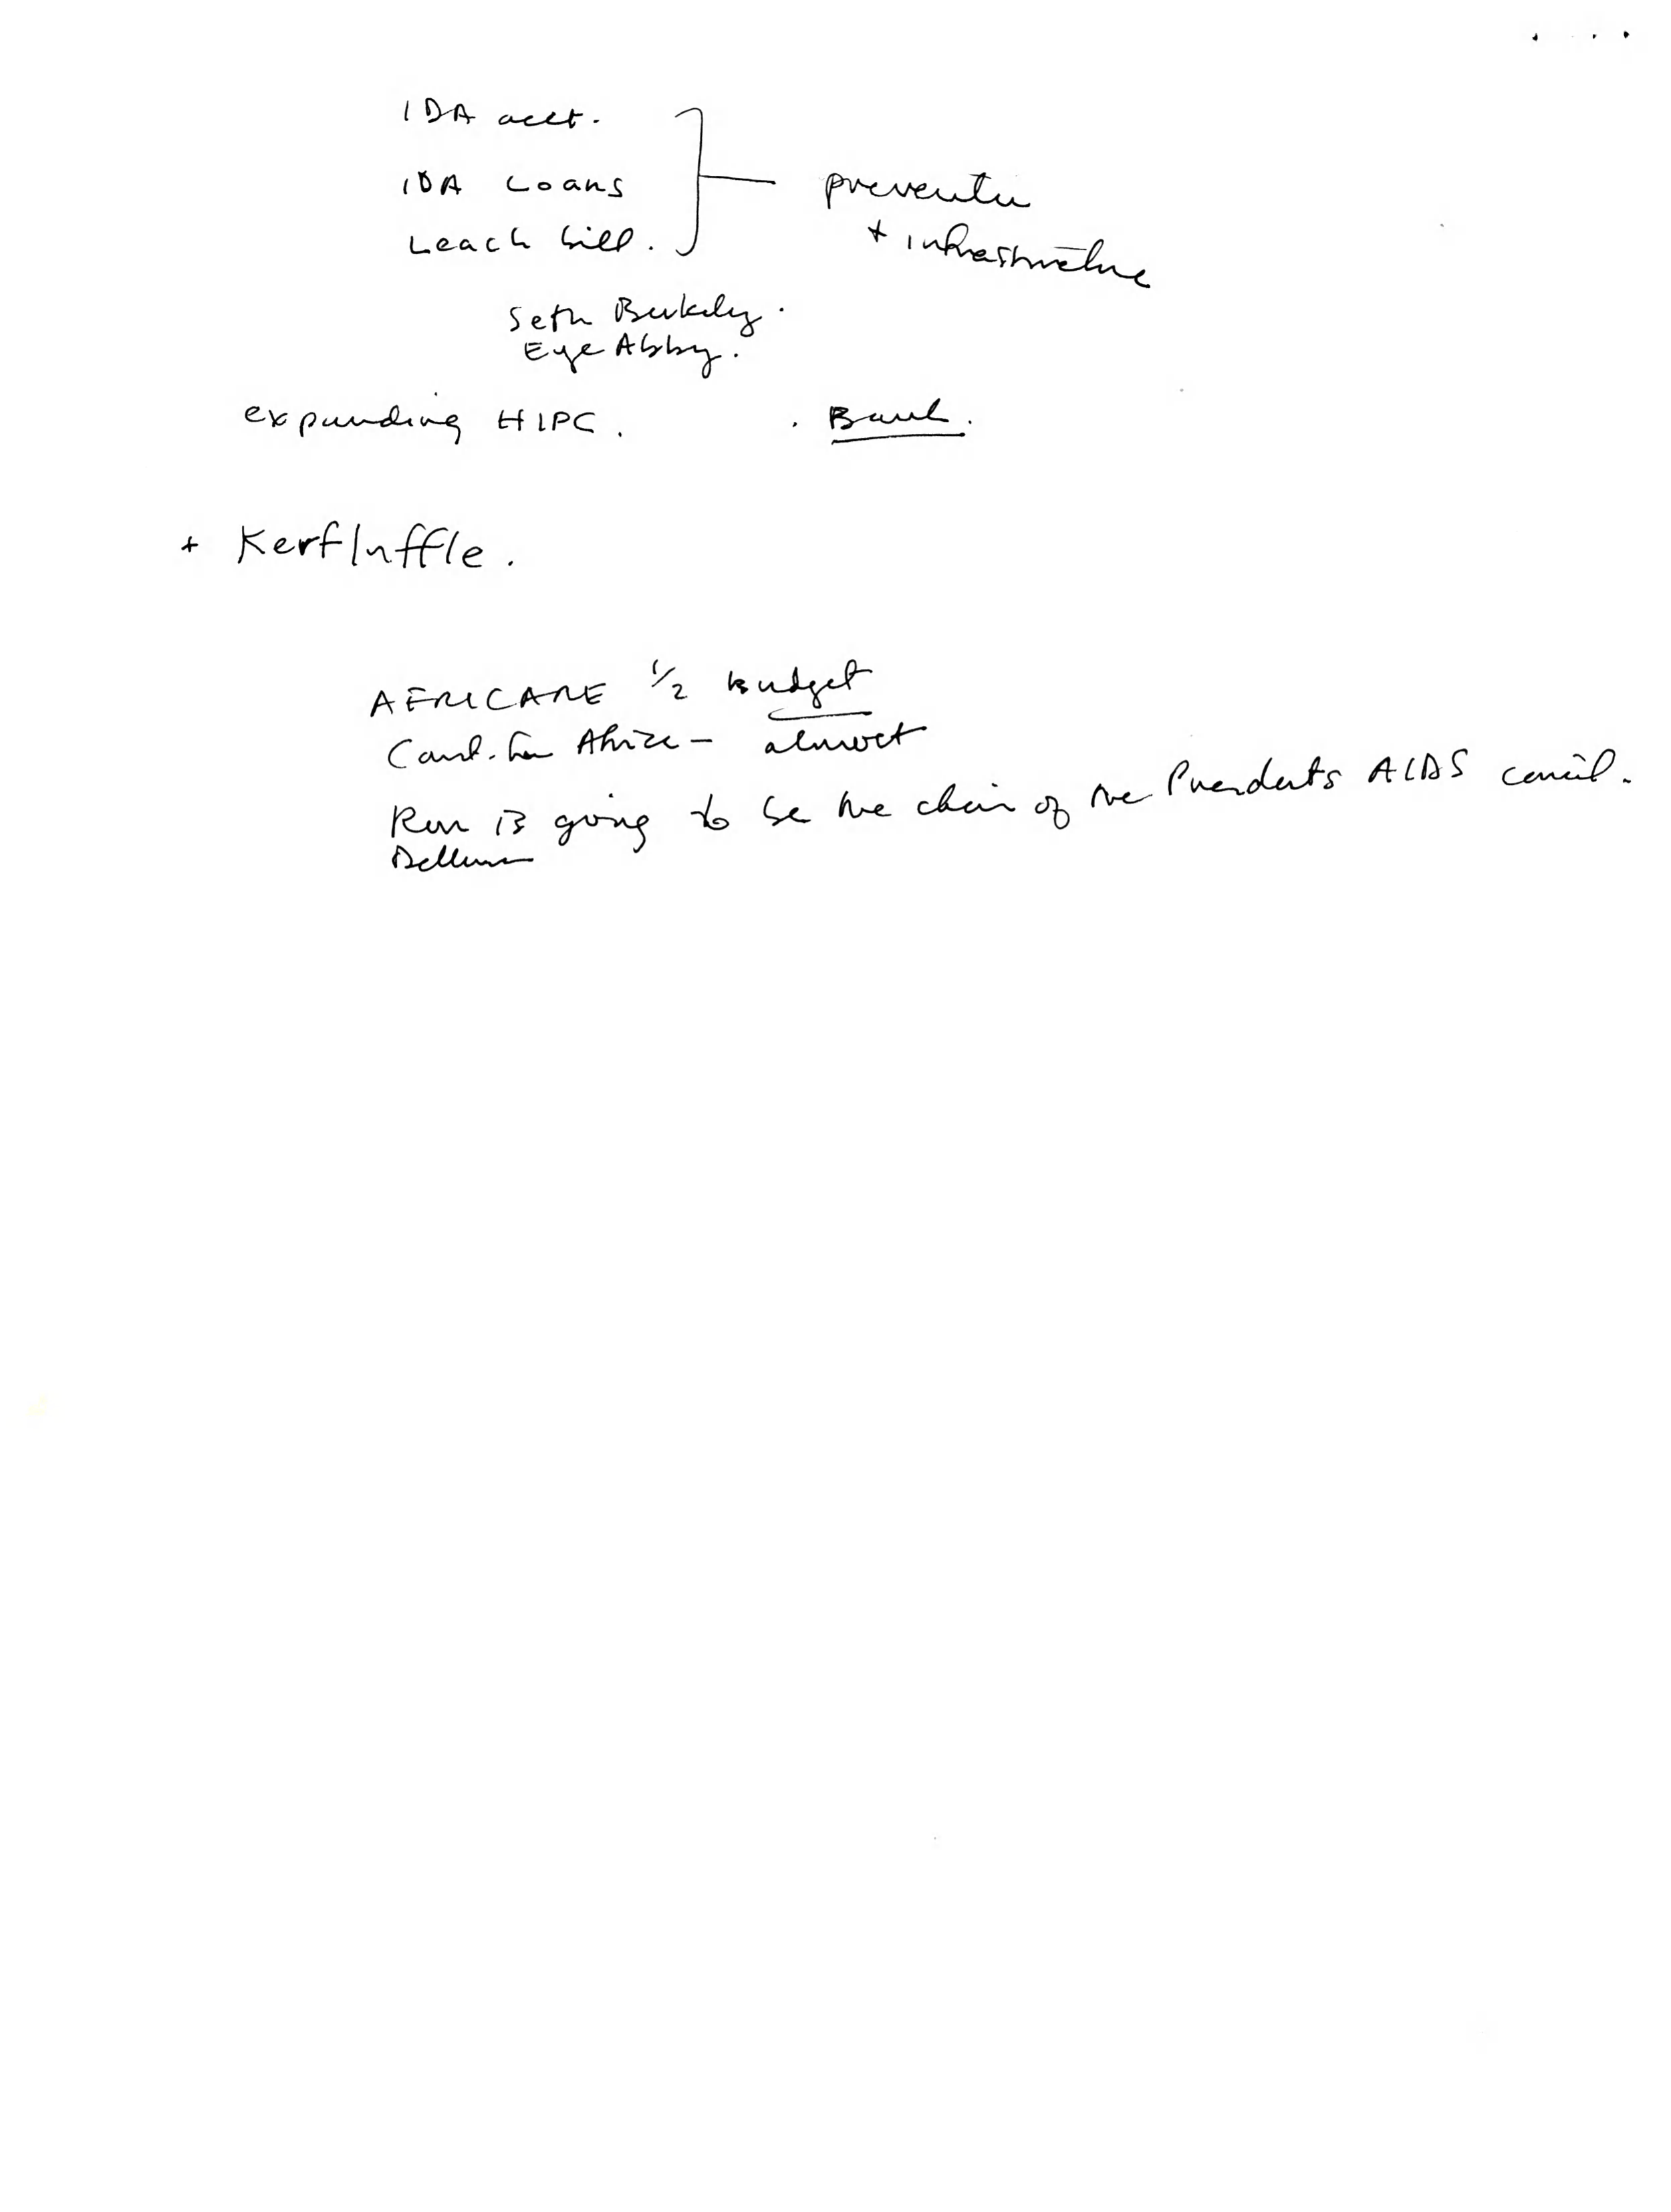 IDA acct.
IDA Loans
Leach bill.
prevention
+ infrastructure
Seth Berkley.
Eye Abby.
expanding HIPC. . Bank.
+ Kerfluffle.
AFRICARE 1/2 budget
for Africa - almost
Ron is going to be the chair of the Presidents AIDS council.
Dellums